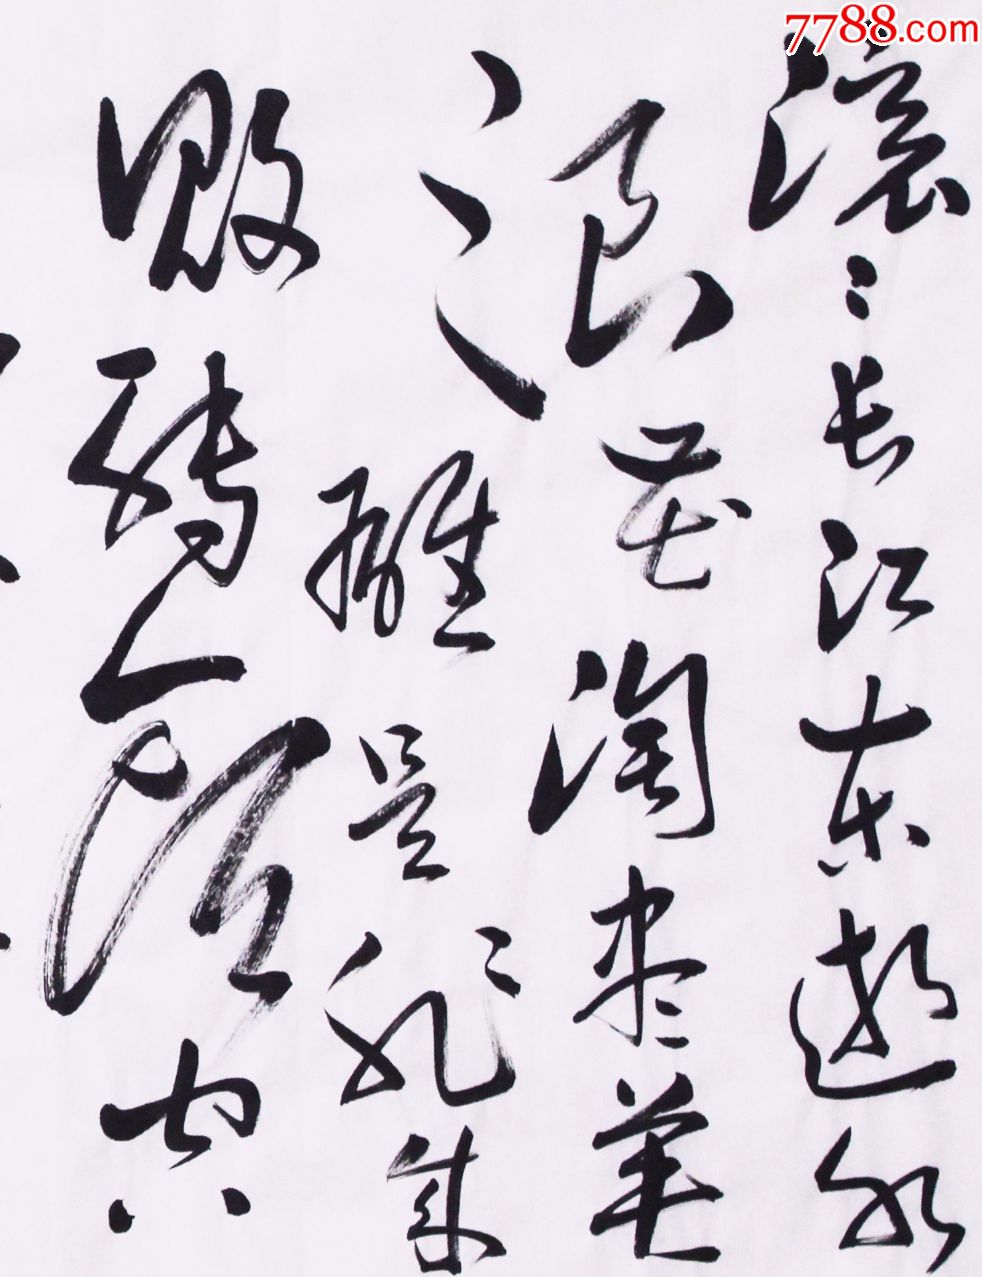 7788.com
滚滚长江东逝水
浪花淘尽英
雄是非成
败转头空